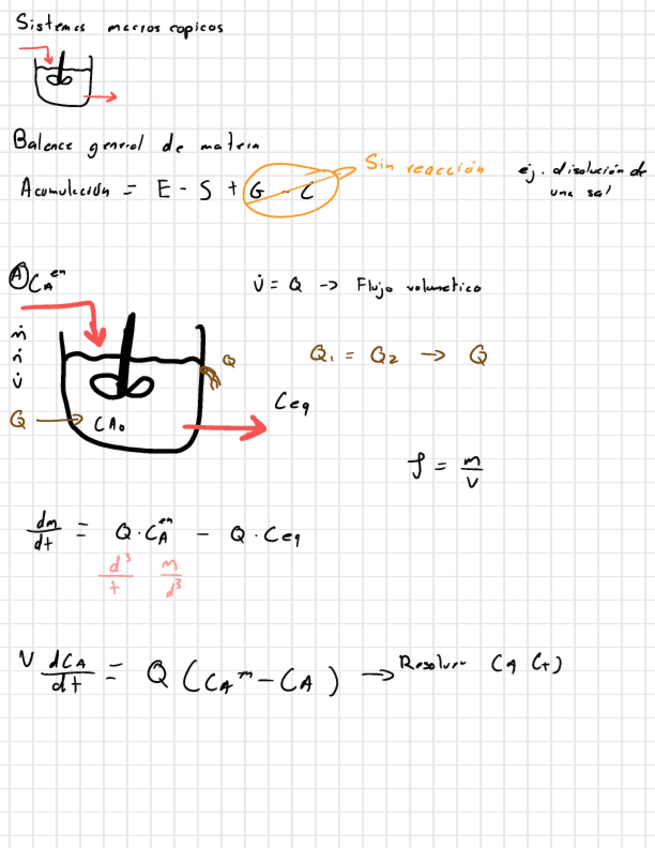 Sistemas macros copicos
Balance general de materia
Acumulación = E - S + G - C Sin reacción ej. disolución de
una sal
A CA^en
V̇ = Q -> Flujo volumetico
ṁ
ṅ
v̇
Q₁ = Q₂ → Q
Q
Q → CA₀
Ceq
ρ = m/V
dm/dt = Q·CA^en - Q·Ceq
d³/t m/d³
V dCA/dt = Q (CA^en - CA) → Resolver CA (t)